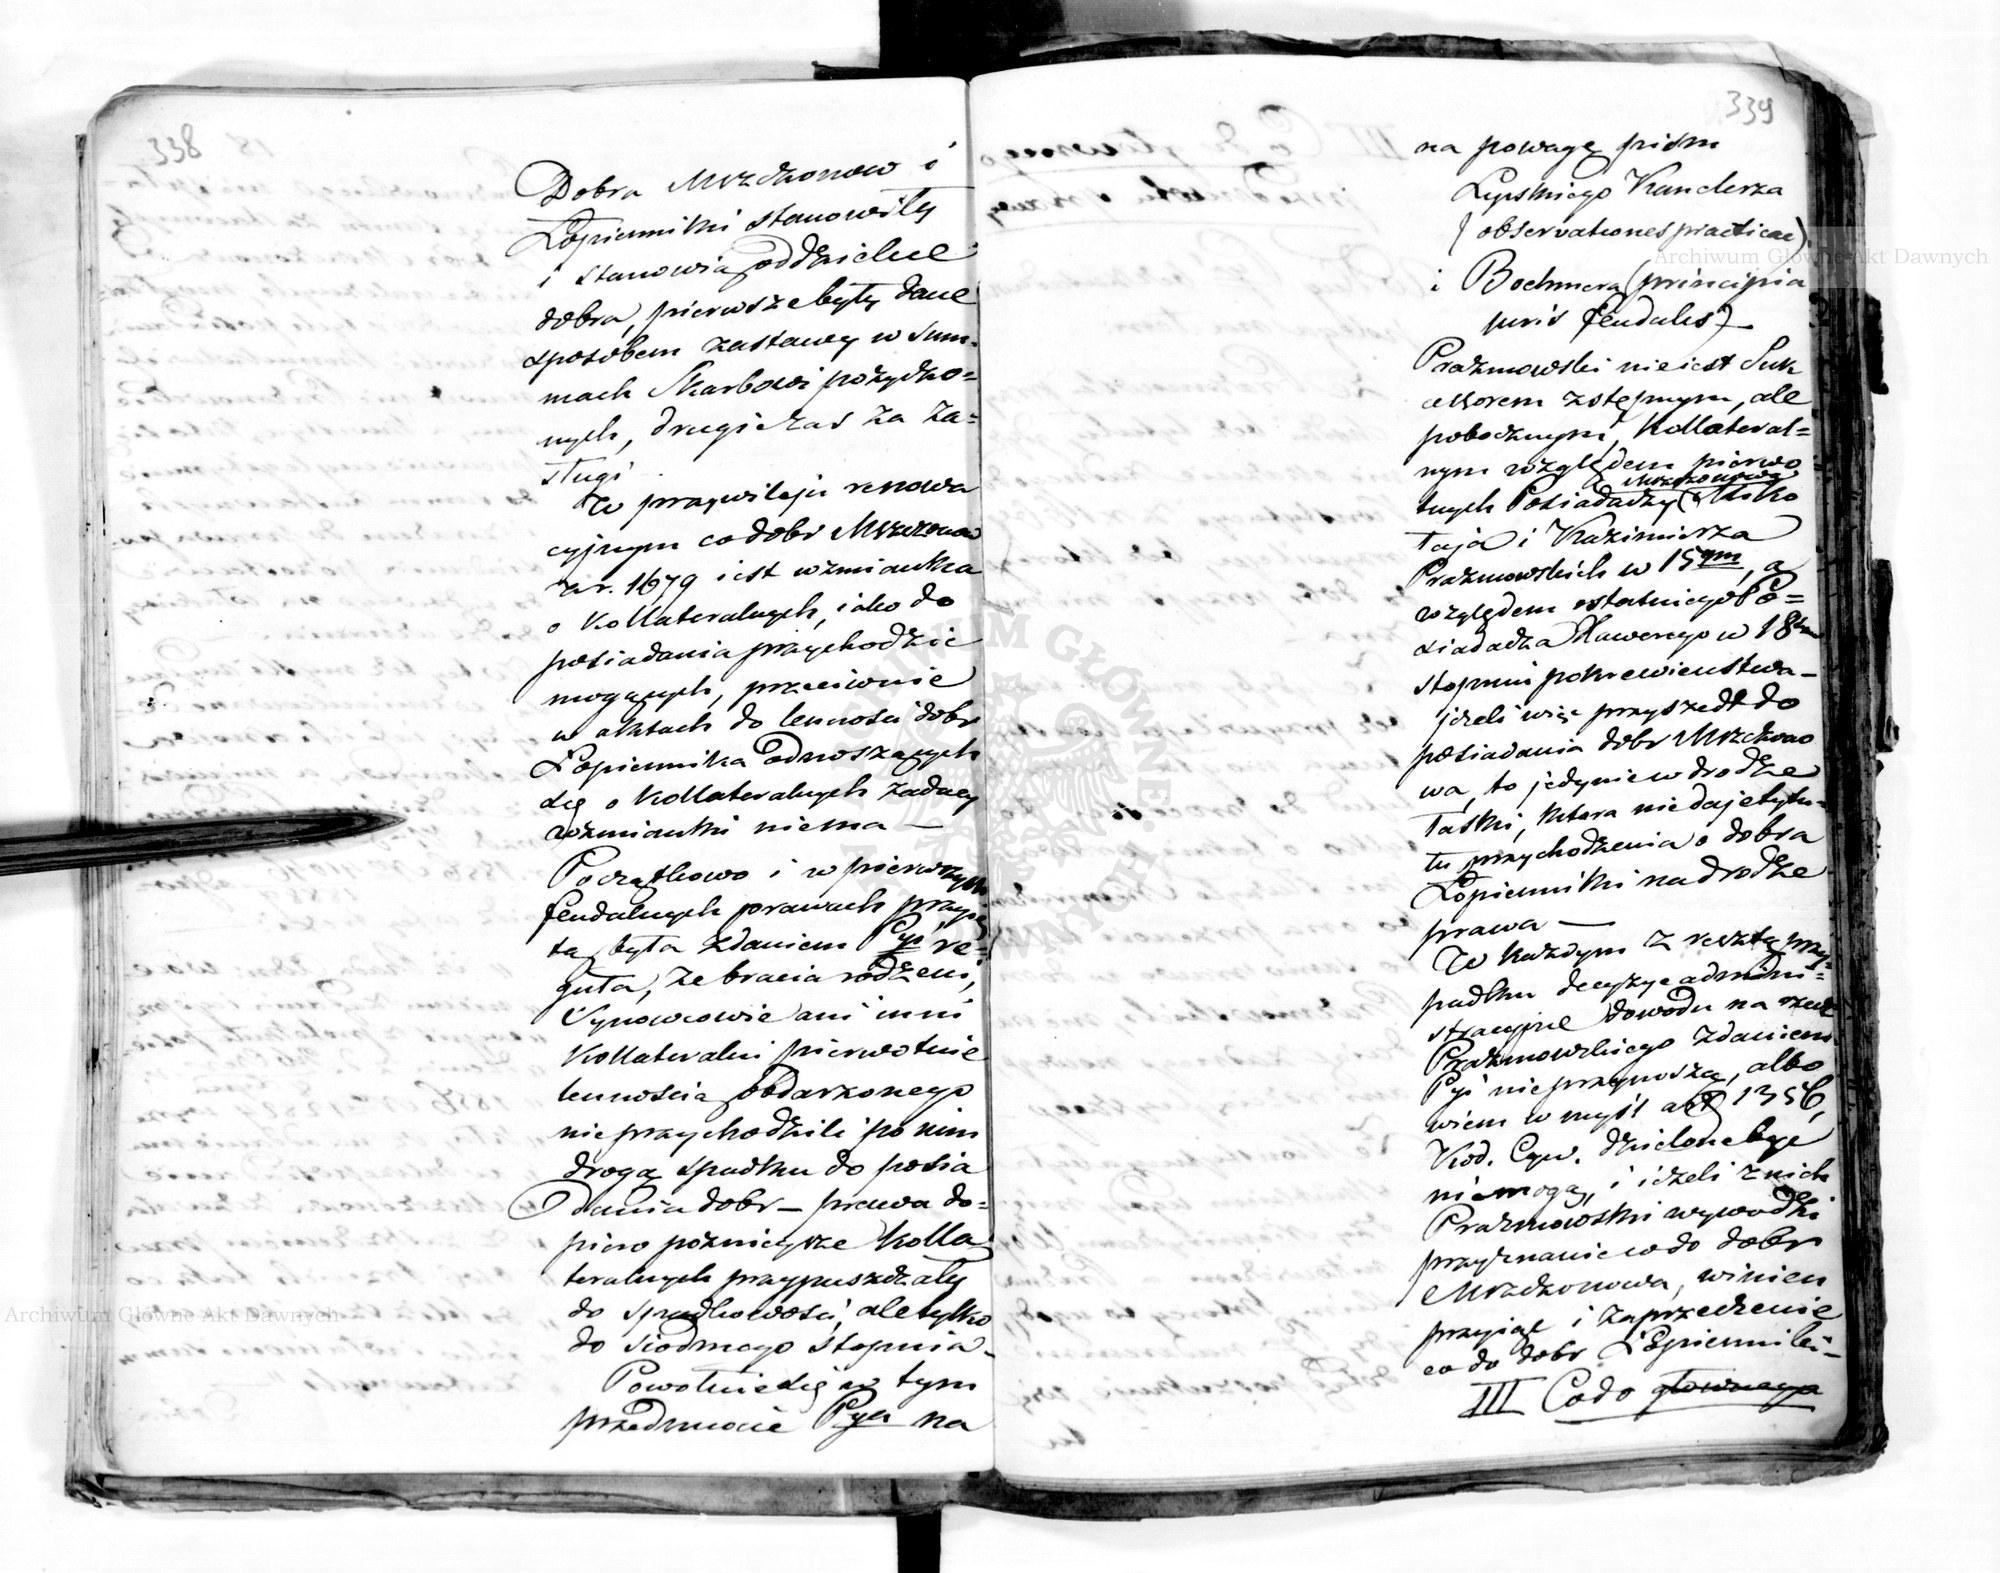 338
Dobra Mrzczonow i
Łopienniki stanowiły
i stanowią oddzielne
dobra, pierwsze były dane
sposobem zastawy w sum-
mach Skarbowi pożyczo=
nych, drugie zas za za=
sługi
W przywileju renowa
cyjnym co do dobr Mrzczonow
z r. 1679 iest wzmianka
o Kollateralnych, iako do
posiadania przychodzic
mogących, przeciwnie
w aktach do lennosci dobr
Łopiennika odnoszących
się o Kollateralnych żadney
wzmianki niema —
Początkowo i w pierwszych
feudalnych prawach przyię
ta była zdaniem Pyi re=
guła, że bracia rodzeni,
Synowcowie ani inni
Kollateralni pierwotnie
lennością obdarzonego
nie przychodzili po nim
drogą spadku do posia
dania dobr — prawa do=
piero poznieysze Kolla
teralnych przypuszczały
do spadkowości, ale tylko
do siodmego stopnia —
Powołuie się w tym
przedmiocie Pya na
339
na powagę pism
Lypskiego Kanclerza
(observationes practicae)
i Boehmera (principia
juris feudales) —
Prażmowski nie iest Suk
cessorem zstępnym, ale
pobocznym, Kollateral=
nym względem pierwo
Mrzczonowa
tnych Posiadaczy Miko
łaja i Kazimierza
Prażmowskich w 15ym, a
względem ostatniego Po=
siadacza Xawerego w 18tym
stopniu pokrewienstwa —
jeżeli więc przyszedł do
posiadania dobr Mrzczono
wa, to jedynie w drodze
łaski, ktora nie daje tytu=
łu przychodzenia o dobra
Łopienniki na drodze
prawa —
W każdym z resztą przy=
padku decyzye admini=
stracyjne dowodu na rzecz
Prażmowskiego zdaniem
Pyi nie przynoszą, albo
wiem w myśl art 1356,
Kod. Cyw. dzielone byc
niemogą, i ieżeli z nich
Prażmowski wywodzi
przyznanie co do dobr
Mrzczonowa, winien
przyiąc i zaprzeczenie
co do dobr Łopienniki —
III Co do głownego
Archiwum Główne Akt Dawnych
Archiwum Główne Akt Dawnych